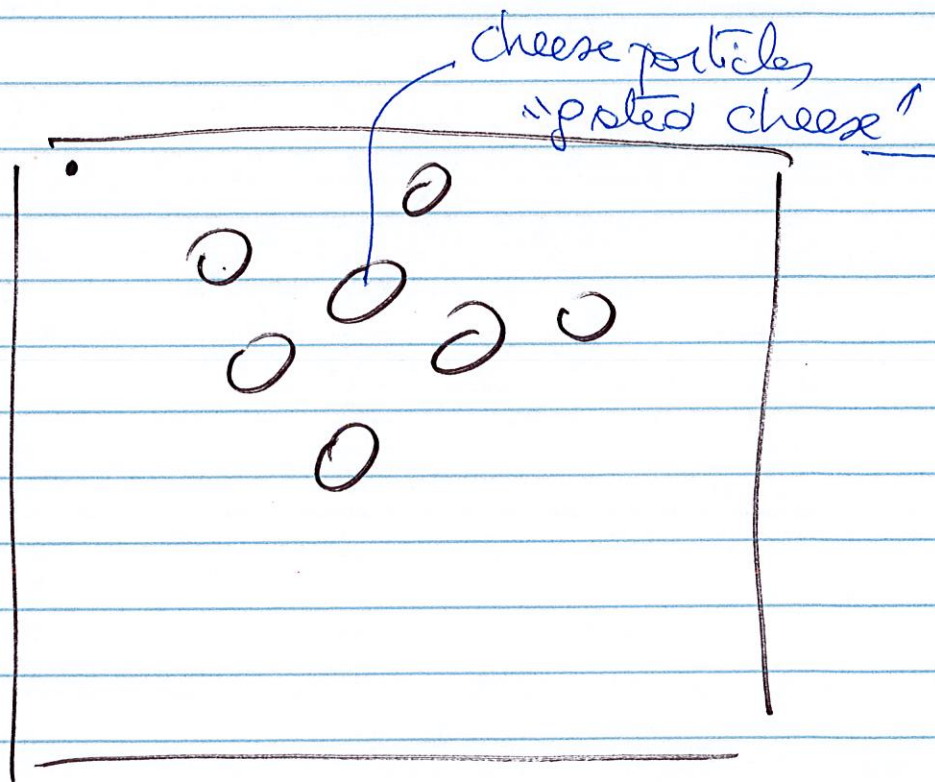 cheese particles
"grated cheese"